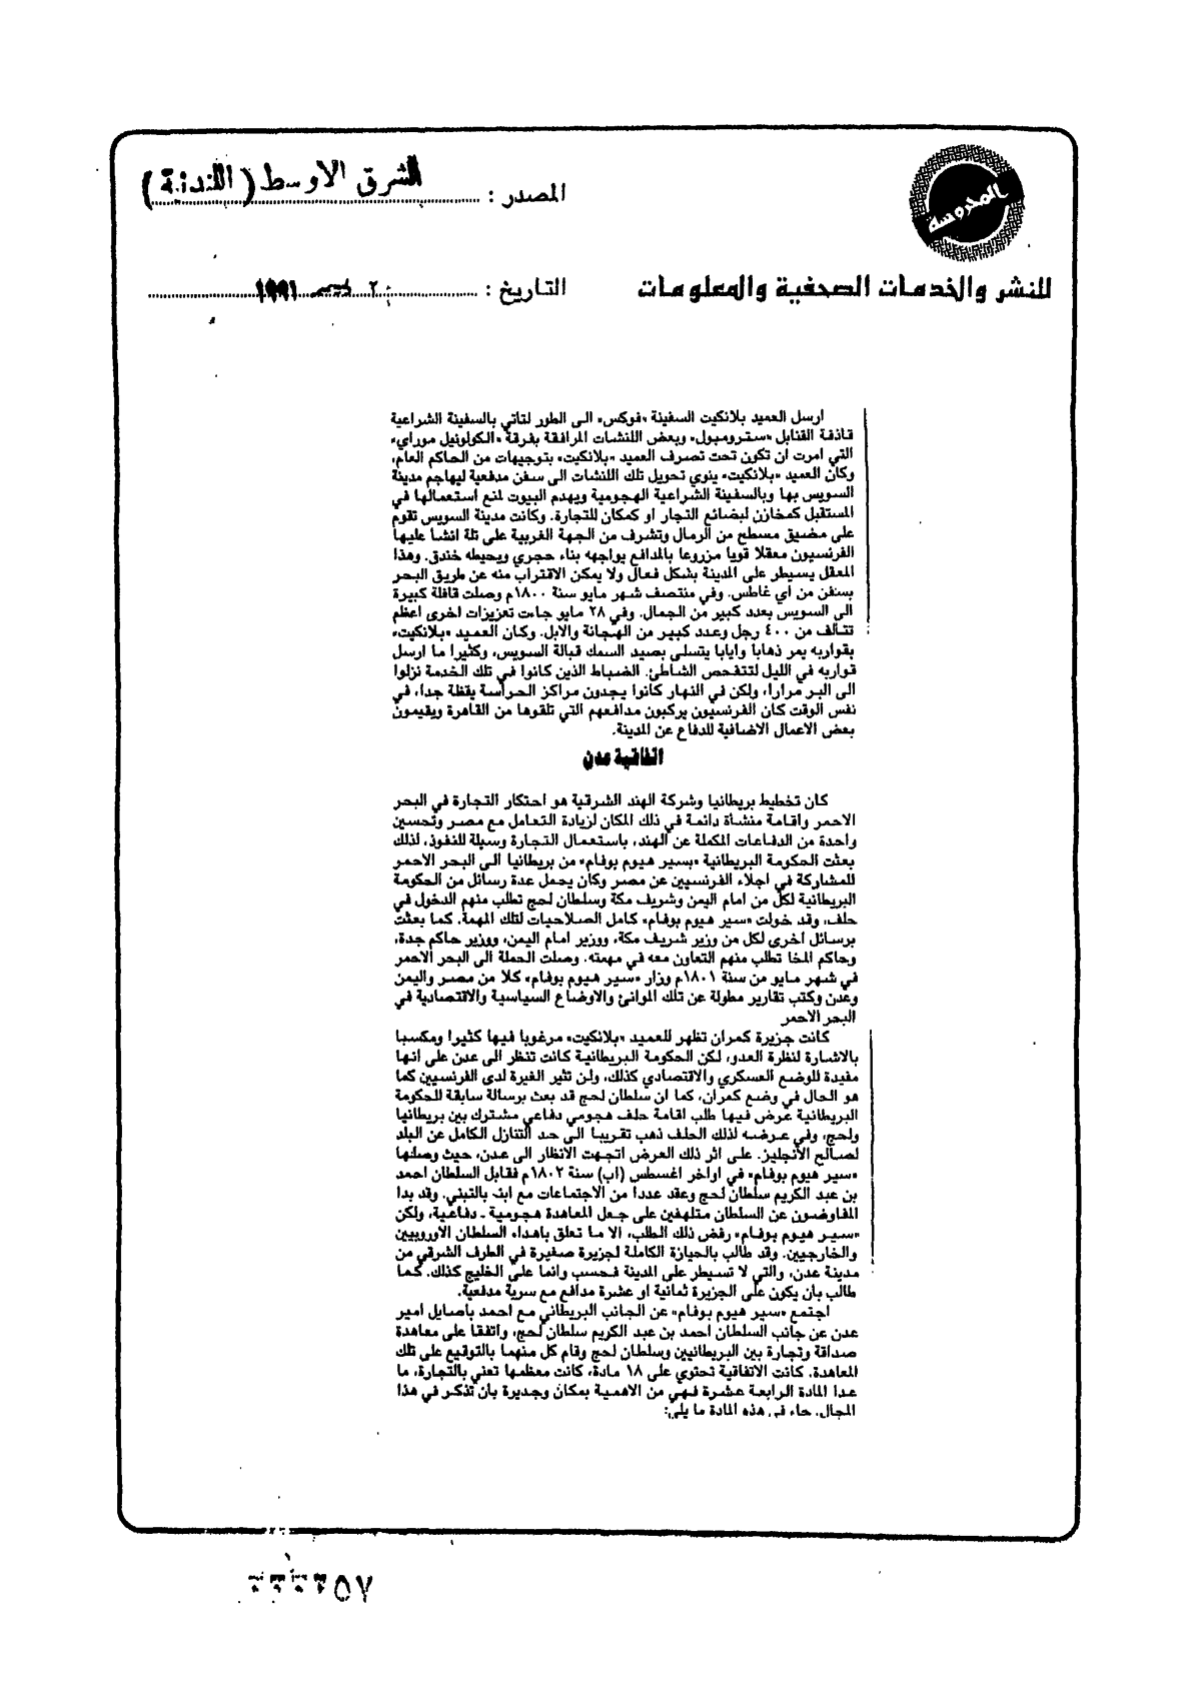 المحروسة
المصدر : الشرق الاوسط (اللندنية)
للنشر والخدمات الصحفية والمعلومات
التاريخ : ٢٠ ديسمبر ١٩٩١
ارسل العميد بلانكيت السفينة «فوكس» الى الطور لتاتي بالسفينة الشراعية
قاذفة القنابل «سترومبول» وبعض اللنشات المرافقة بفرقة «الكولونيل موراي»
التي امرت ان تكون تحت تصرف العميد «بلانكيت» بتوجيهات من الحاكم العام،
وكان العميد «بلانكيت» ينوي تحويل تلك اللنشات الى سفن مدفعية ليهاجم مدينة
السويس بها وبالسفينة الشراعية الهجومية ويهدم البيوت لمنع استعمالها في
المستقبل كمخازن لبضائع التجار او كمكان للتجارة. وكانت مدينة السويس تقوم
على مضيق مسطح من الرمال وتشرف من الجهة الغربية على تلة انشا عليها
الفرنسيون معقلا قويا مزروعا بالمدافع يواجهه بناء حجري ويحيطه خندق. وهذا
المعقل يسيطر على المدينة بشكل فعال ولا يمكن الاقتراب منه عن طريق البحر
بسفن من اي غاطس. وفي منتصف شهر مايو سنة ١٨٠٠م وصلت قافلة كبيرة
الى السويس بعدد كبير من الجمال. وفي ٢٨ مايو جاءت تعزيزات اخرى اعظم
تتألف من ٤٠٠ رجل وعدد كبير من الهجانة والابل. وكان العميد «بلانكيت»
بقواربه يمر ذهابا وايابا يتسلى بصيد السمك قبالة السويس، وكثيرا ما ارسل
قواربه في الليل لتتفحص الشاطئ. الضباط الذين كانوا في تلك الخدمة نزلوا
الى البر مرارا، ولكن في النهار كانوا يجدون مراكز الحراسة يقظة جدا، في
نفس الوقت كان الفرنسيون يركبون مدافعهم التي تلقوها من القاهرة ويقيمون
بعض الاعمال الاضافية للدفاع عن المدينة.
اتفاقية عدن
كان تخطيط بريطانيا وشركة الهند الشرقية هو احتكار التجارة في البحر
الاحمر واقامة منشأة دائمة في ذلك المكان لزيادة التعامل مع مصر وتحسين
واحدة من الدفاعات المكملة عن الهند، باستعمال التجارة وسيلة للنفوذ، لذلك
بعثت الحكومة البريطانية «بسير هيوم بوفام» من بريطانيا الى البحر الاحمر
للمشاركة في اجلاء الفرنسيين عن مصر وكان يحمل عدة رسائل من الحكومة
البريطانية لكل من امام اليمن وشريف مكة وسلطان لحج تطلب منهم الدخول في
حلف، وقد خولت «سير هيوم بوفام» كامل الصلاحيات لتلك المهمة. كما بعثت
برسائل اخرى لكل من وزير شريف مكة، ووزير امام اليمن، ووزير حاكم جدة،
وحاكم المخا تطلب منهم التعاون معه في مهمته. وصلت الحملة الى البحر الاحمر
في شهر مايو من سنة ١٨٠١م وزار «سير هيوم بوفام» كلا من مصر واليمن
وعدن وكتب تقارير مطولة عن تلك الموانئ والاوضاع السياسية والاقتصادية في
البحر الاحمر
كانت جزيرة كمران تظهر للعميد «بلانكيت» مرغوبا فيها كثيرا ومكسبا
بالاشارة لنظرة العدو، لكن الحكومة البريطانية كانت تنظر الى عدن على انها
مفيدة للوضع العسكري والاقتصادي كذلك، ولن تثير الغيرة لدى الفرنسيين كما
هو الحال في وضع كمران، كما ان سلطان لحج قد بعث برسالة سابقة للحكومة
البريطانية عرض فيها طلب اقامة حلف هجومي دفاعي مشترك بين بريطانيا
ولحج، وفي عرضه لذلك الحلف ذهب تقريبا الى حد التنازل الكامل عن البلد
لصالح الانجليز. على اثر ذلك العرض اتجهت الانظار الى عدن، حيث وصلها
«سير هيوم بوفام» في اواخر اغسطس (اب) سنة ١٨٠٢م فقابل السلطان احمد
بن عبد الكريم سلطان لحج وعقد عددا من الاجتماعات مع ابنه بالتبني. وقد بدا
المفاوضون عن السلطان متلهفين على جعل المعاهدة هجومية ـ دفاعية، ولكن
«سير هيوم بوفام» رفض ذلك الطلب، الا ما تعلق باهداء السلطان الاوروبيين
والخارجيين. وقد طالب بالحيازة الكاملة لجزيرة صغيرة في الطرف الشرقي من
مدينة عدن، والتي لا تسيطر على المدينة فحسب وانما على الخليج كذلك. كما
طالب بان يكون على الجزيرة ثمانية او عشرة مدافع مع سرية مدفعية.
اجتمع «سير هيوم بوفام» عن الجانب البريطاني مع احمد باصايل امير
عدن عن جانب السلطان احمد بن عبد الكريم سلطان لحج، واتفقا على معاهدة
صداقة وتجارة بين البريطانيين وسلطان لحج وقام كل منهما بالتوقيع على تلك
المعاهدة. كانت الاتفاقية تحتوي على ١٨ مادة، كانت معظمها تعني بالتجارة، ما
عدا المادة الرابعة عشرة فهي من الاهمية بمكان وجديرة بان تذكر في هذا
المجال. جاء في هذه المادة ما يلي: